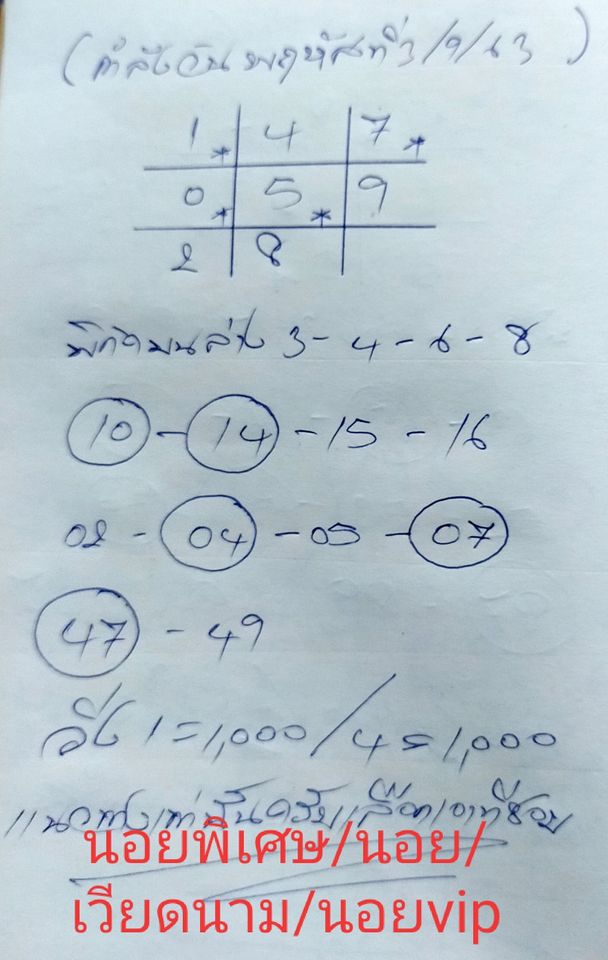 (กำลังวันพฤหัสที่3/9/63)
1* 4 7*
0* 5* 9
2 8
พิกัดบนล่าง 3-4-6-8
10-14-15-16
02-04-05-07
47-49
วิ่ง 1=1,000/4=1,000
แนวทางเท่านั้นครับเลือกเอาที่ชอบ
นอยพิเศษ/นอย/
เวียดนาม/นอยvip